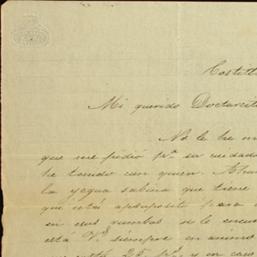 Costitt
Mi querido Doctorcit
No le he m
que me pidió pª su cuidado
he tenido con quien. Ahu
la yegua sabina que tiene
que está apropósito para
en esos rumbos si le encu
está Vª siempre en animo
25 pª y en caso